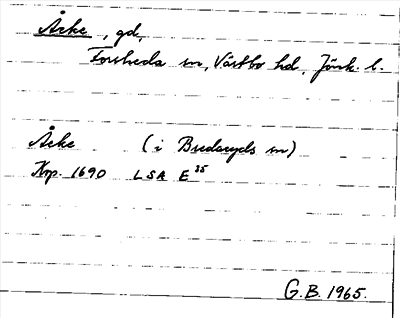 Åcke, gd,
Forsheda sn, Västbo hd, Jönk. l.
Åcke (i Bredaryds sn)
Krp. 1690 LSA E 35
G.B. 1965.